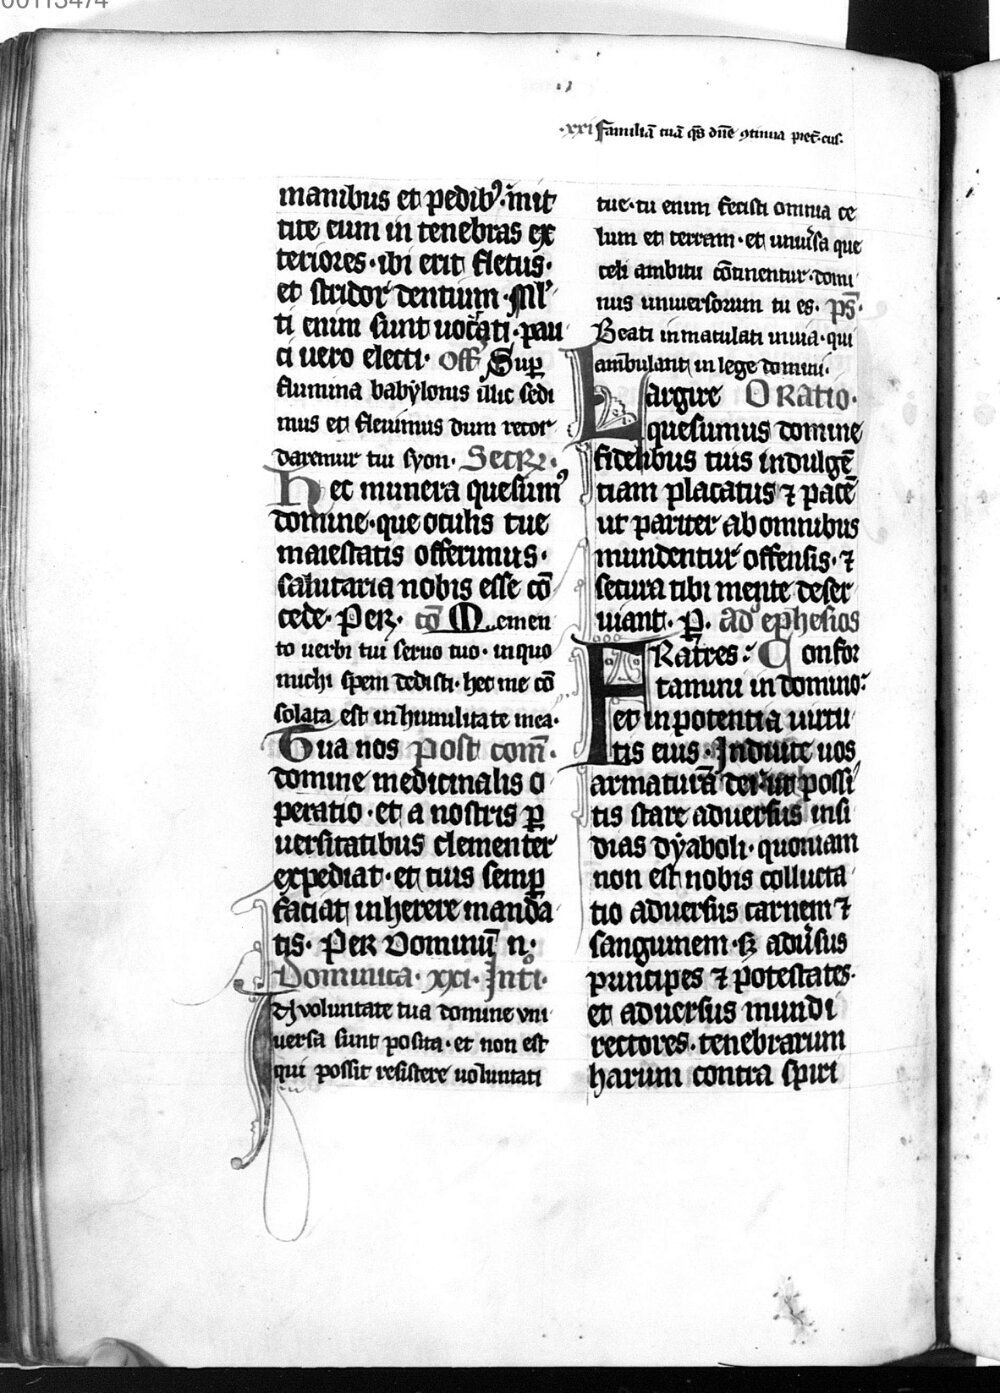 00113474
·xxi familiā tuā q̄s dn̄e ꝯtinua piet̄·cus·
manibus et pedib⁹·mit
tite eum in tenebras ex
teriores·ibi erit fletus·
et stridor dentium·Ml̓
ti enim sunt uocati·pau
ci uero electi· Off̄ Suꝑ
flumina babẏlonis illic sedi
mus et fleuimus dum recor
daremur tui syon· Secr̄·
Hec munera quesum⁹
domine·que oculis tue
maiestatis offerimus·
salutaria nobis esse cō
cede·Per· cō Memen
to uerbi tui seruo tuo·inquo
michi spem dedisti·hec me cō
solata est in humilitate mea·
Tua nos post com̄·
domine medicinalis o
peratio·et a nostris ꝑ
uersitatibus clementer
expediat·et tuis semꝑ
faciat inherere manda
tis· Per Dominū n·
Dominica·xxi·Intͦi·
In voluntate tua domine vni
uersa sunt posita·et non est
qui possit resistere uoluntati
tue·tu enim fecisti omnia ce
lum et terram·et uniu̓sa que
celi ambitu cōtinentur·domi
nus uniuersorum tu es· ps̄·
Beati inmaculati inuia·qui
ambulant in lege domini·
Largire Oratio·
quesumus domine
fidelibus tuis indulgē
tiam placatus ⁊ pacē
ut pariter ab omnibus
mundentur offensis·⁊
secura tibi mente deser
uiant·p̄· ad ephesios
FRatres: Confor
tamini in domino:
et in potentia uirtu
tis eius·Induite uos
armaturā dei·ut possi
tis stare aduersus insi
dias dẏaboli·quoniam
non est nobis collucta
tio aduersus carnem ⁊
sanguinem·sꝫ adu̓sus
principes ⁊ potestates·
et aduersus mundi
rectores·tenebrarum
harum contra spiri